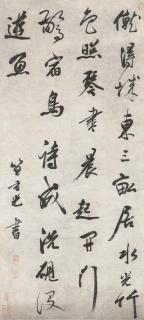 僦得城東三畝居水光竹
色照琴書晨起開門
驚宿鳥詩成洗硯没
遊魚
笪重光書